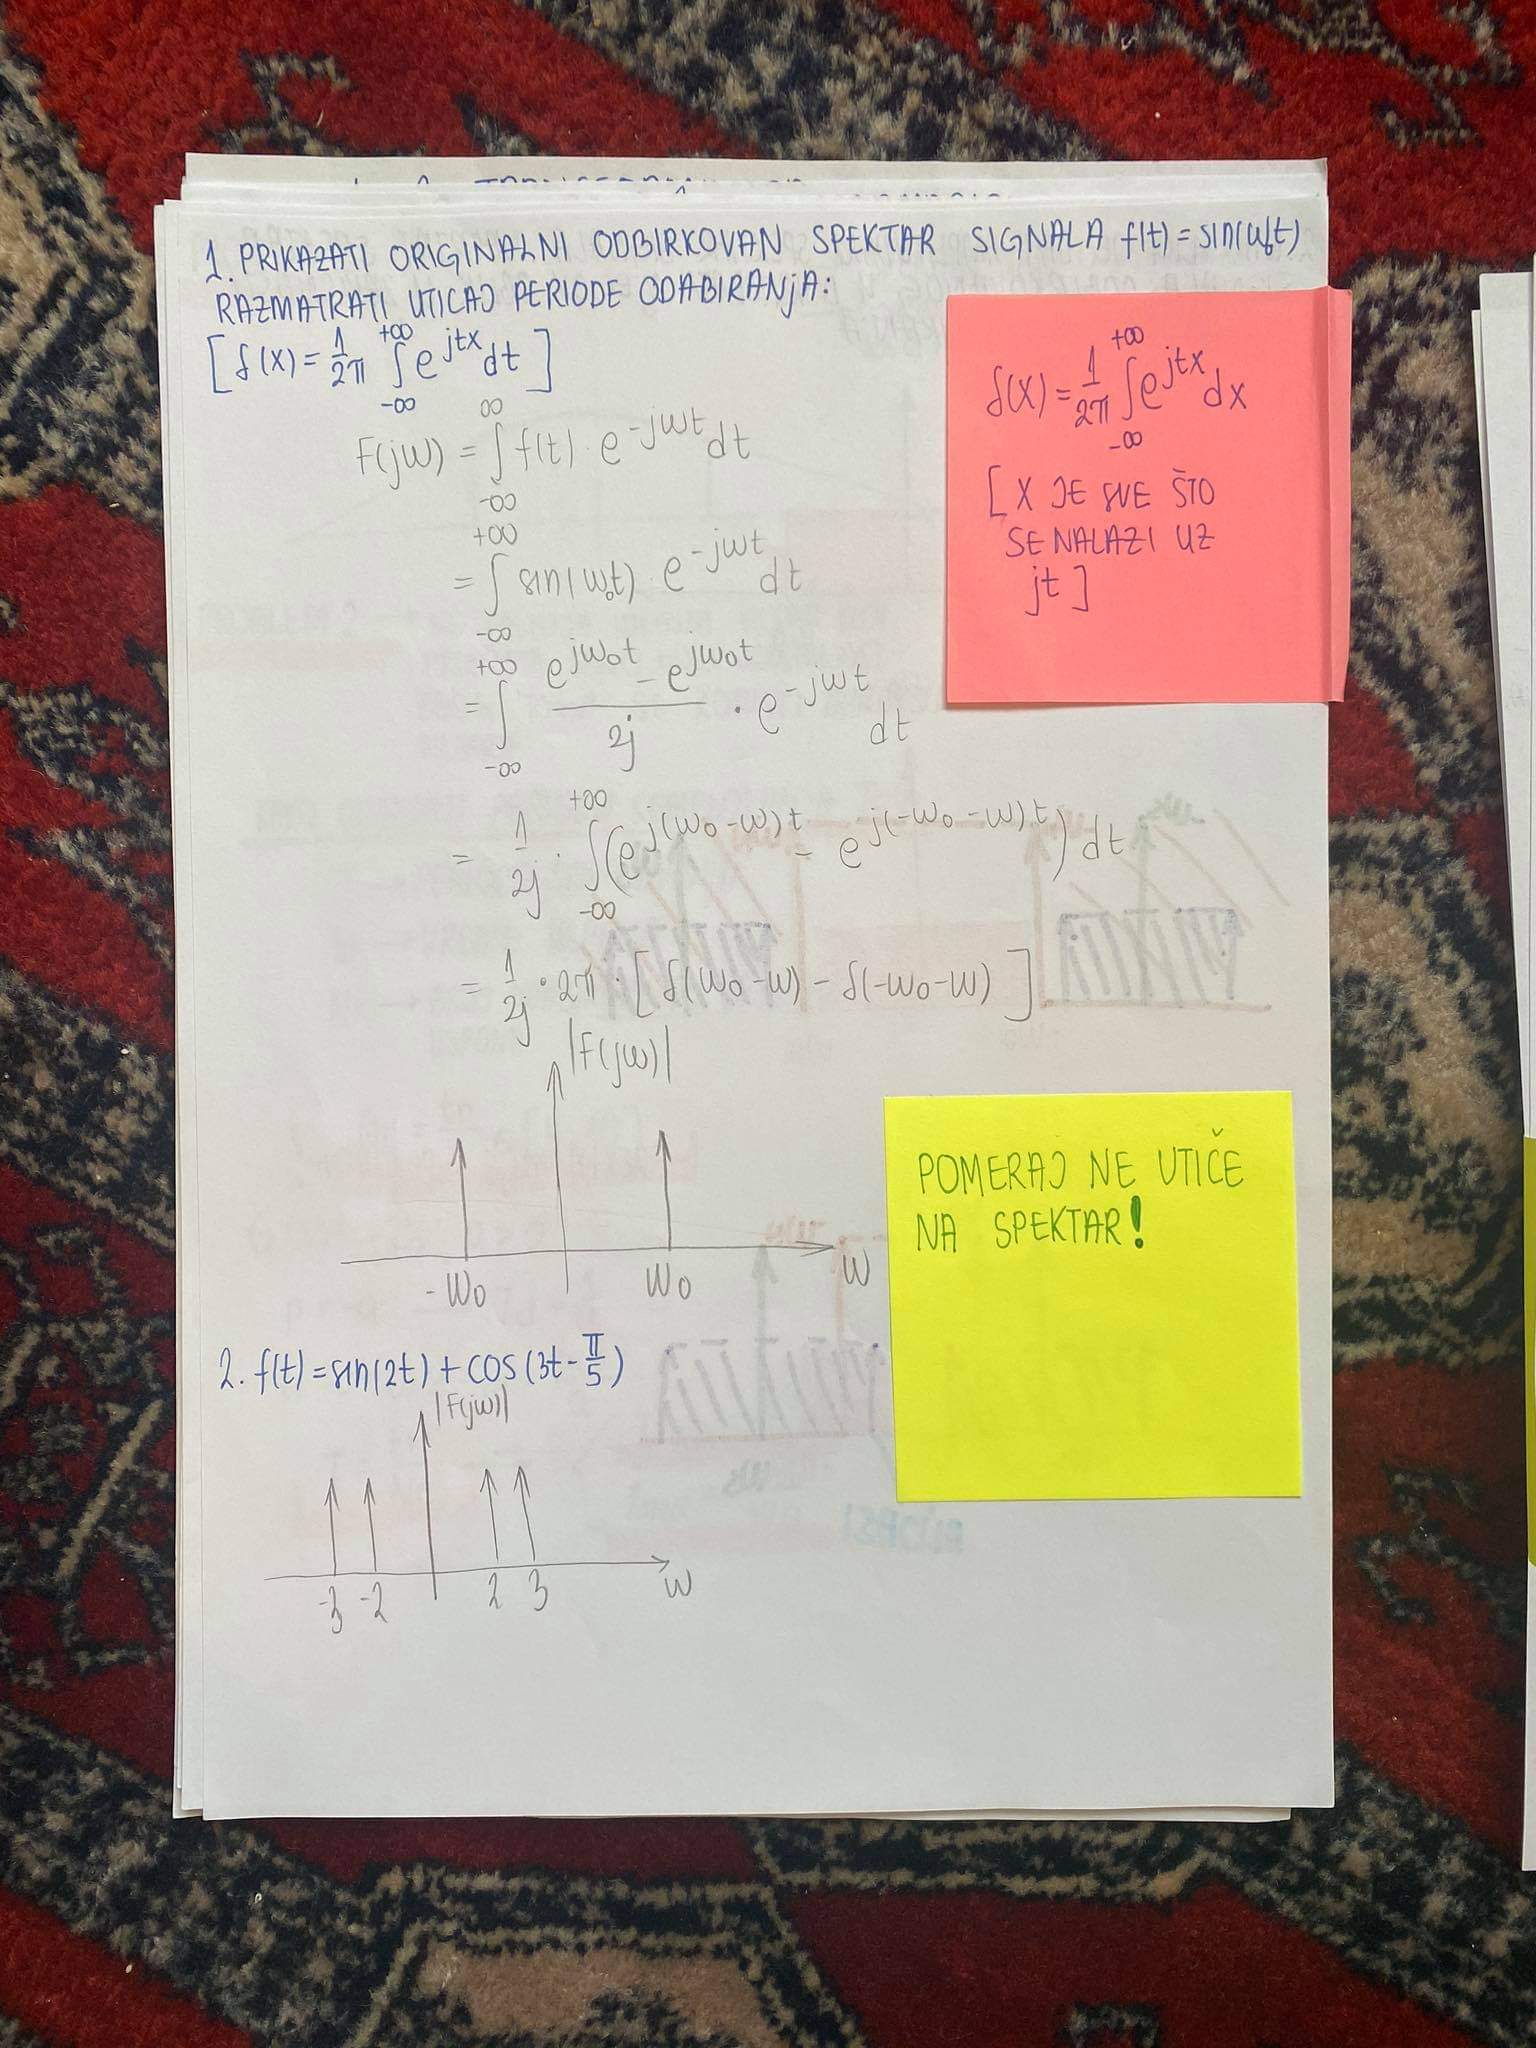 1. PRIKAZATI ORIGINALNI ODBIRKOVAN SPEKTAR SIGNALA f(t) = sin(ω₀t)
RAZMATRATI UTICAJ PERIODE ODABIRANjA:
[δ(x) = 1/2π ∫_{-∞}^{+∞} e^{jtx} dt]
F(jω) = ∫_{-∞}^{∞} f(t) · e^{-jωt} dt
= ∫_{-∞}^{+∞} sin(ω₀t) · e^{-jωt} dt
= ∫_{-∞}^{+∞} (e^{jω₀t} - e^{jω₀t})/2j · e^{-jωt} dt
= 1/2j · ∫_{-∞}^{+∞} (e^{j(ω₀-ω)t} - e^{j(-ω₀-ω)t}) dt
= 1/2j · 2π · [δ(ω₀-ω) - δ(-ω₀-ω)]
|F(jω)|
-ω₀ ω₀ ω
2. f(t) = sin(2t) + COS(3t - π/5)
|F(jω)|
-3 -2 2 3 ω
δ(x) = 1/2π ∫_{-∞}^{+∞} e^{jtx} dx
[X JE SVE ŠTO
SE NALAZI UZ
jt]
POMERAJ NE UTIČE
NA SPEKTAR!